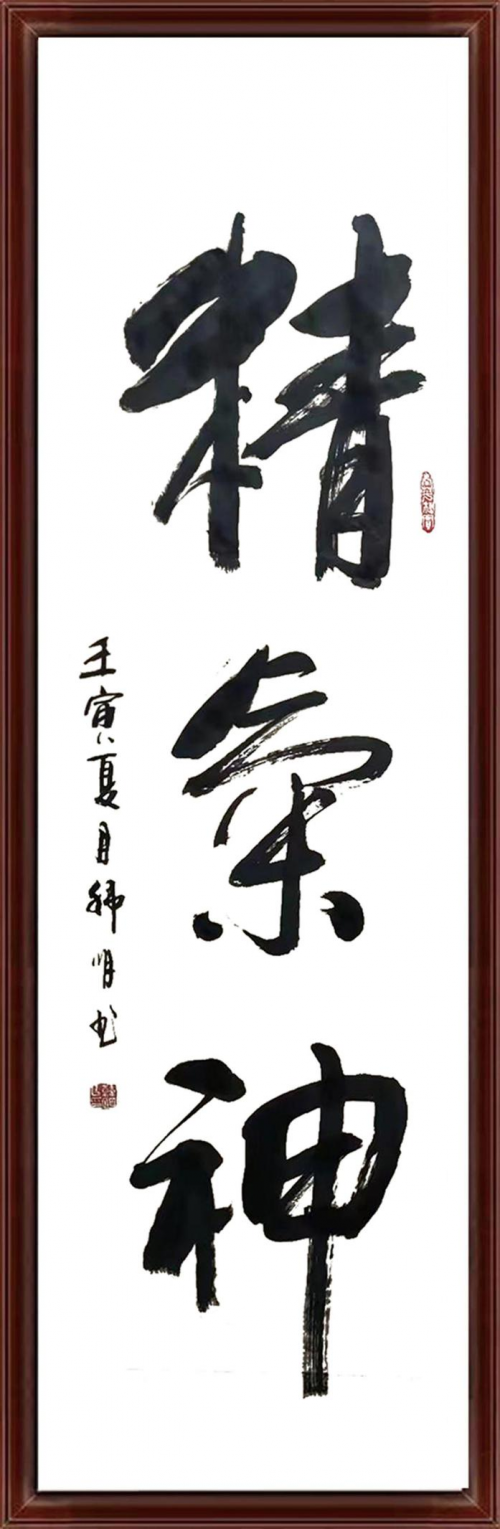 精
氣
神
壬寅夏月明书